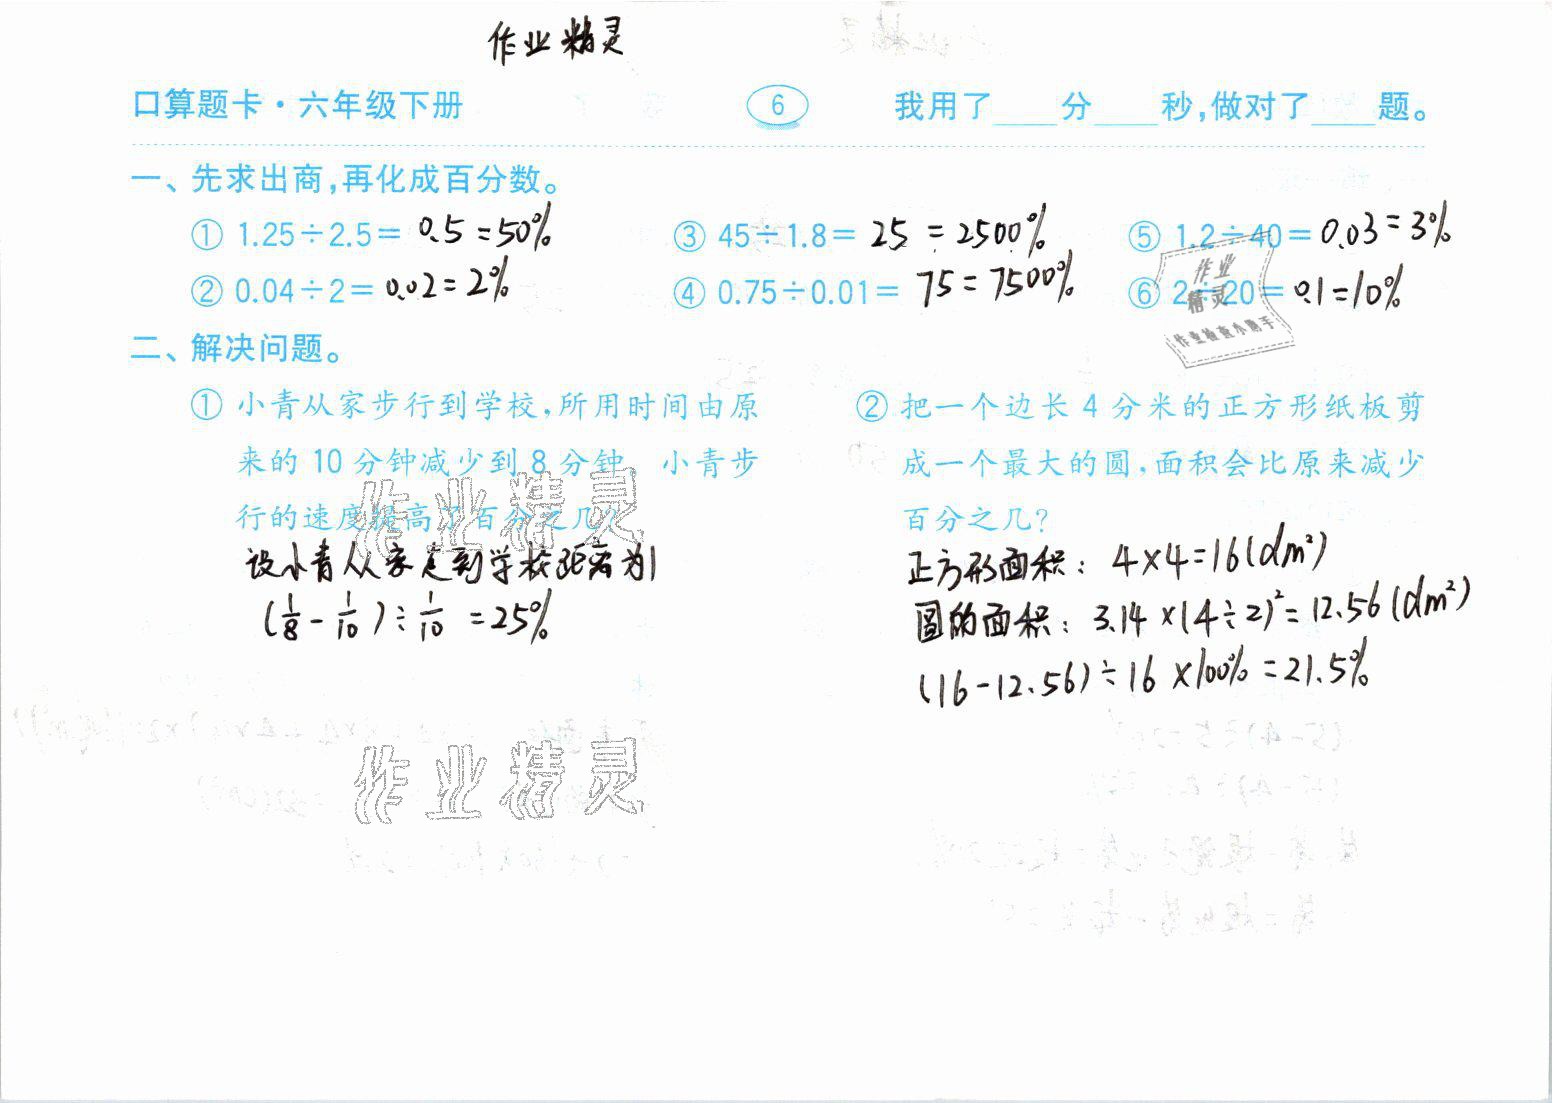 作业精灵
口算题卡·六年级下册 6 我用了____分____秒,做对了____题。
一、先求出商,再化成百分数。
① 1.25÷2.5= 0.5=50% ③ 45÷1.8= 25=2500% ⑤ 1.2÷40= 0.03=3%
② 0.04÷2= 0.02=2% ④ 0.75÷0.01= 75=7500% ⑥ 2÷20= 0.1=10%
作业
精灵
作业检查小助手
二、解决问题。
① 小青从家步行到学校,所用时间由原
来的 10 分钟减少到 8 分钟 小青步
行的速度提高了百分之几?
作业精灵
设小青从家走到学校距离为1
(1/8-1/10)÷1/10=25%
② 把一个边长 4 分米的正方形纸板剪
成一个最大的圆,面积会比原来减少
百分之几?
正方形面积: 4×4=16(dm²)
圆的面积: 3.14×(4÷2)²=12.56(dm²)
(16-12.56)÷16×100%=21.5%
作业精灵